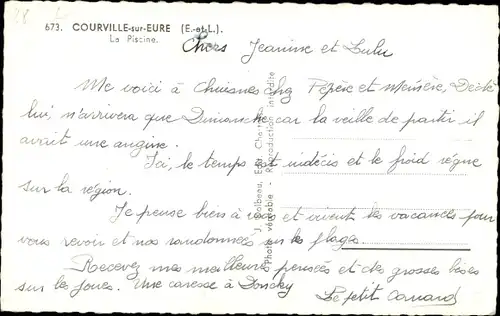 673. COURVILLE-sur-EURE (E.-et-L.).
La Piscine.
Chers Jeanine et Lulu
Me voici à Chuisnes chez Pépère et Mémère, Dédé
lui n'arrivera que Dimanche car la veille de partir il
avait une angine.
Ici, le temps est indécis et le froid règne
sur la région.
Je pense bien à vous et vivent les vacances pour
vous revoir et nos randonnées sur les plages.
Recevez mes meilleures pensées et des grosses bises
sur les joues. Une caresse à
Le petit Canard
Édit.
Photo véritable - Reproduction interdite